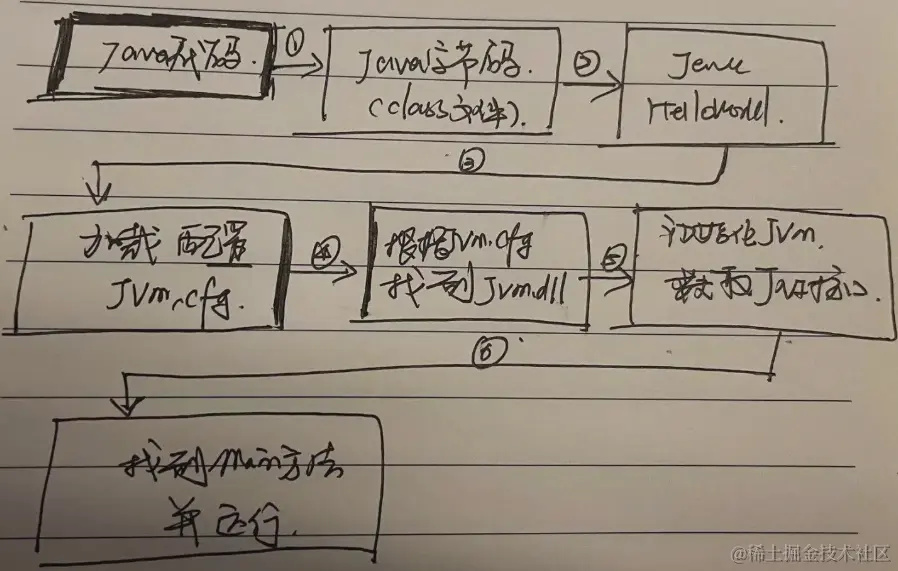 Java代码.
①
Java字节码.
(class文件).
②
Java
HelloWorld.
③
加载 配置
JVm.cfg.
④
根据JVm.cfg
找到Jvm.dll
⑤
初始化JVm.
获取Java接口.
⑥
找到main方法
并运行.
@稀土掘金技术社区